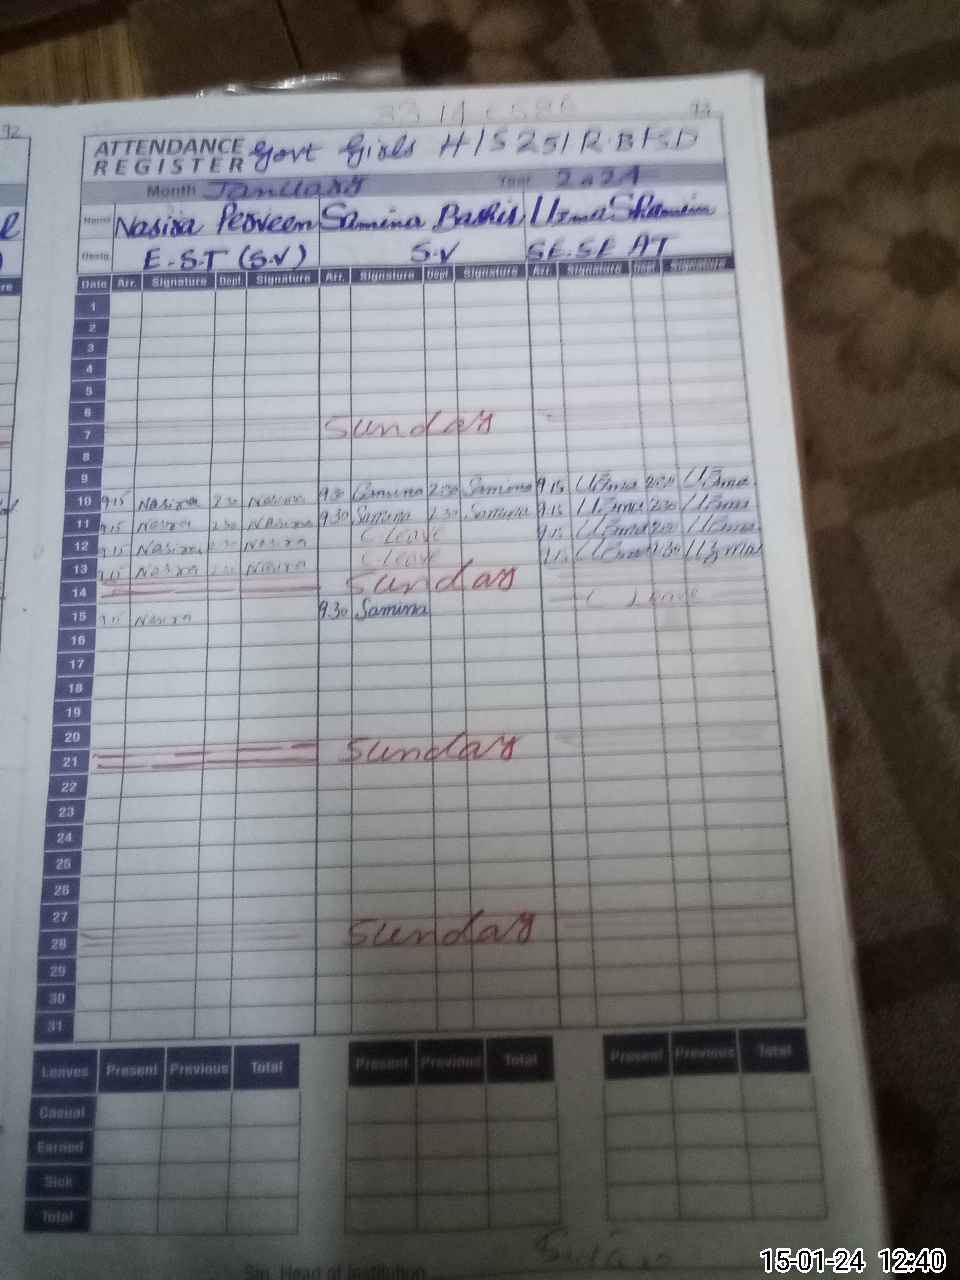 92
93
ATTENDANCE REGISTER Govt Girls H/S 251 R.B FSD
Month January Year 2024
Name Nasira Perveen Samina Bashir Uzma Shamim
Desig. E.S.T (S.V) S.V SE.SE AT
Date Arr. Signature Dept. Signature Arr. Signature Dept. Signature Arr. Signature Dept. Signature
1
2
3
4
5
6
7 Sunday
8
9
10 9.15 Nasira 2.30 Nasira 9.30 Samina 2.30 Samina 9.15 Uzma 2.30 Uzma
11 9.15 Nasira 2.30 Nasira 9.30 Samina 2.30 Samina 9.15 Uzma 2.30 Uzma
12 9.15 Nasira 2.30 Nasira C Leave 9.15 Uzma 2.30 Uzma
13 9.15 Nasira 2.30 Nasira C Leave Uzma 2.30 Uzma
14 Sunday
15 Nasira 9.30 Samina C Leave
16
17
18
19
20
21 Sunday
22
23
24
25
26
27
28 Sunday
29
30
31
Leaves Present Previous Total Present Previous Total Present Previous Total
Casual
Earned
Sick
Total
Sig. Head of Institution
15-01-24 12:40